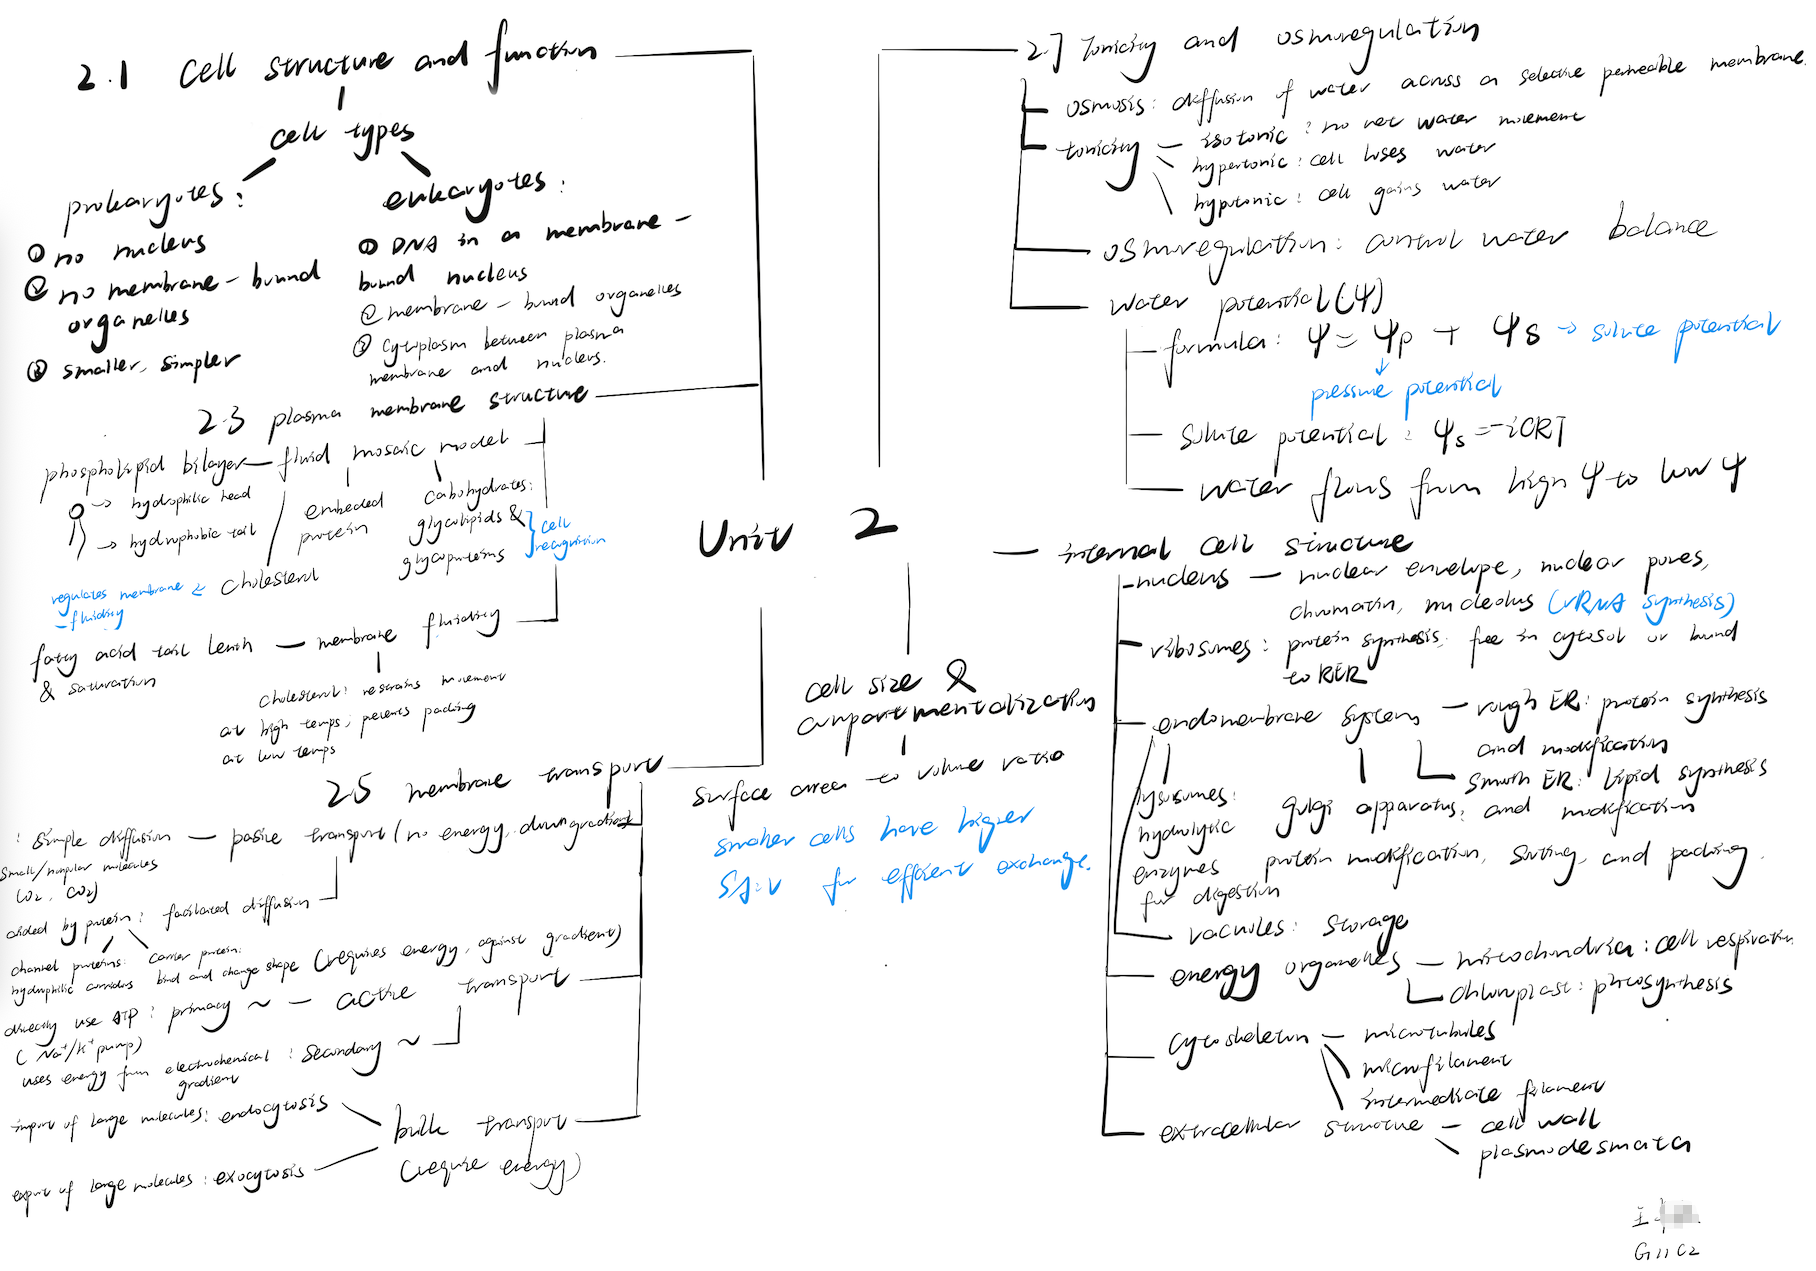 2.1 Cell structure and function
cell types
prokaryotes:
① no nucleus
② no membrane-bound
organelles
③ smaller, simpler
eukaryotes:
① DNA in a membrane-
bound nucleus
② membrane-bound organelles
③ cytoplasm between plasma
membrane and nucleus.
2.3 plasma membrane structure
phospholipid bilayer — fluid mosaic model
→ hydrophilic head
→ hydrophobic tail
embeded
protein
carbohydrates:
glycolipids &
glycoproteins
cell
recognition
regulates membrane ← cholesterol
-fluidity
fatty acid tail lenth — membrane fluidity
& saturation
cholesterol: restrains movement
at high temps; prevents packing
at low temps
2.5 membrane transport
: simple diffusion — passive transport (no energy, down gradient
small/nonpolar molecules
(O2, CO2)
aided by protein: facilitated diffusion
channel proteins:
hydrophilic corridors
carrier protein:
bind and change shape
(requires energy, against gradient)
directly use ATP: primary ~ — active transport
(Na+/K+ pump)
uses energy from electrochemical : secondary ~
gradient
import of large molecules: endocytosis
bulk transport
(require energy)
export of large molecules: exocytosis
Unit 2
cell size &
compartmentalization
surface area to volume ratio
smaller cells have higher
SA:V for efficient exchange.
2.7 Tonicity and osmoregulation
osmosis: diffusion of water across a selective permeable membrane.
tonicity — isotonic: no net water movement
hypertonic: cell loses water
hypotonic: cell gains water
osmoregulation: control water balance
water potential (Ψ)
formula: Ψ = Ψp + Ψs → solute potential
pressure potential
solute potential: Ψs = -iCRT
water flows from high Ψ to low Ψ
— internal cell structure
nucleus — nuclear envelope, nuclear pores,
chromatin, nucleolus (rRNA synthesis)
ribosomes: protein synthesis, free in cytosol or bound
to RER
endomembrane system — rough ER: protein synthesis
and modification
smooth ER: lipid synthesis
and modification
golgi apparatus:
protein modification, sorting, and packing.
lysosomes:
hydrolytic
enzymes
for digestion
vacuoles: storage
energy organelles — mitochondria: cell respiration
chloroplast: photosynthesis
cytoskeleton — microtubules
microfilament
intermediate filament
extracellular structure — cell wall
plasmodesmata
王
G11 C2